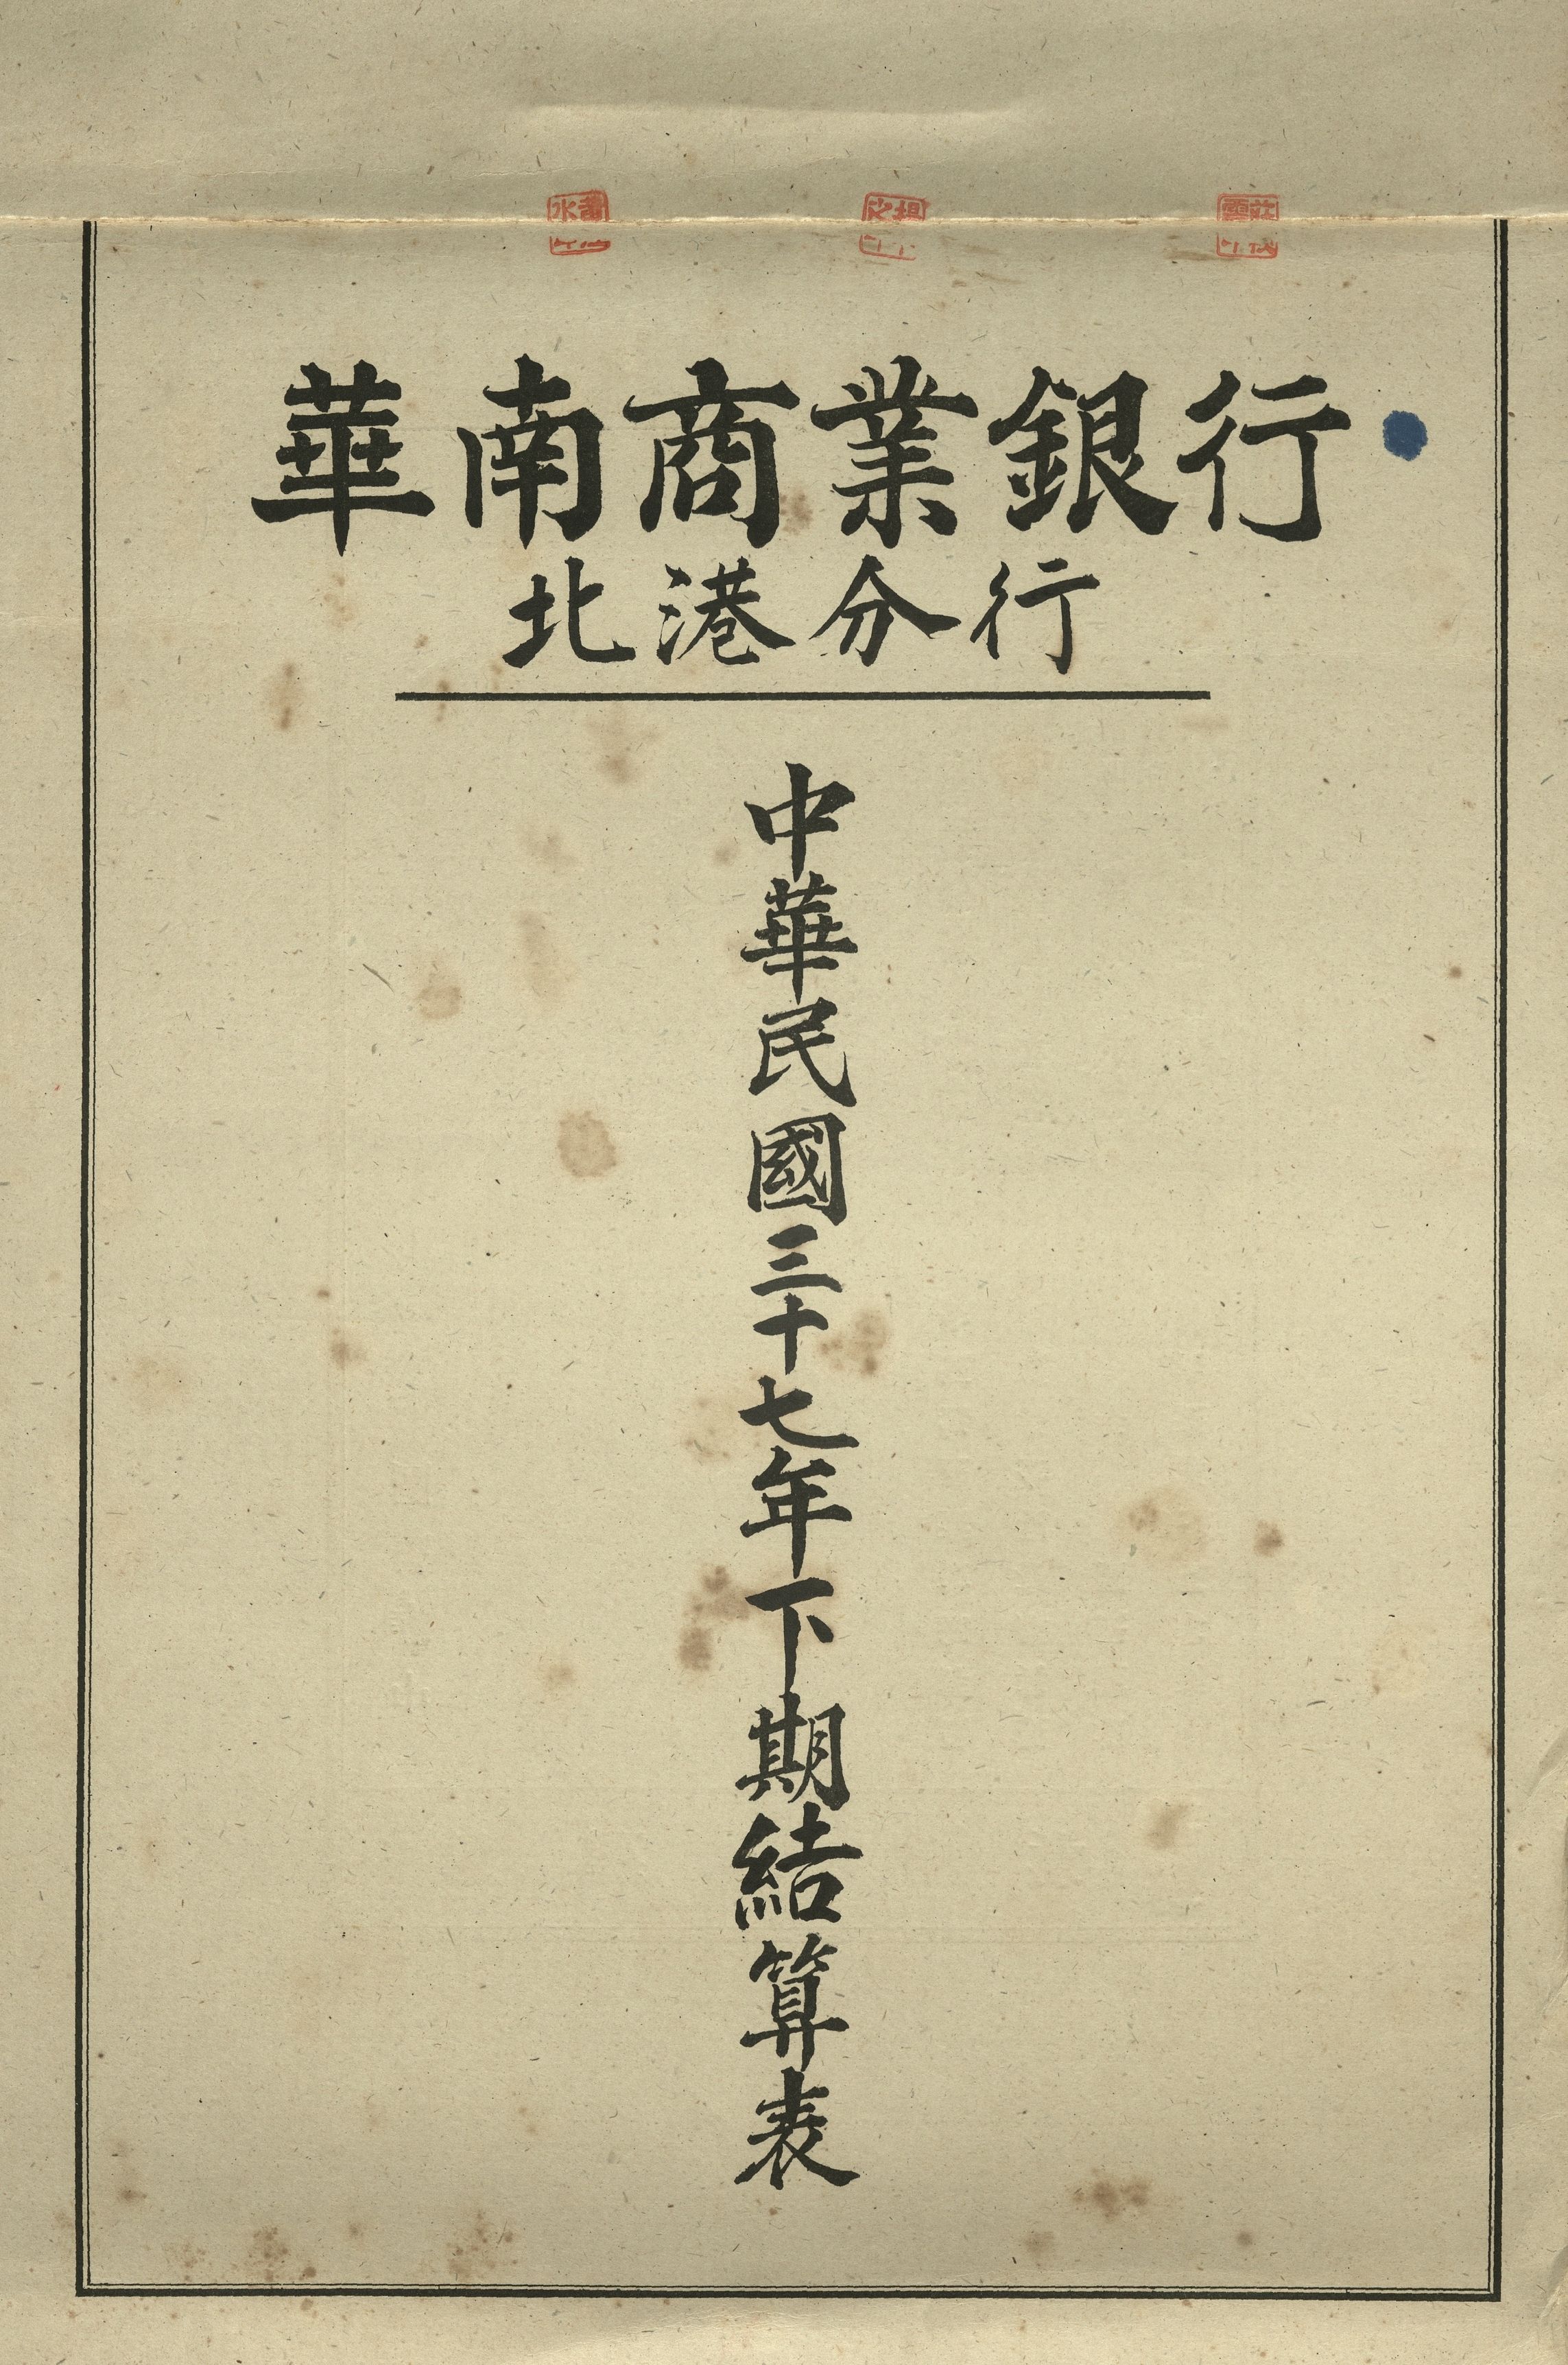 華南商業銀行
北港分行
中華民國三十七年下期結算表